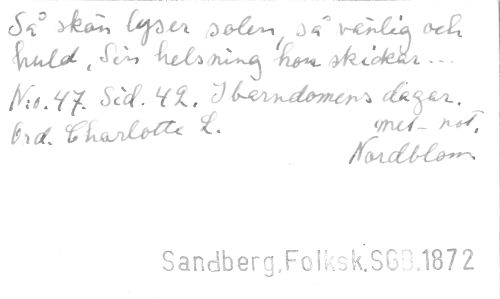 Så skön lyser solen, så vänlig och
huld, Sin helsning hon skickar...
N:o. 47. Sid. 42. I barndomens dagar.
Ord. Charlotte L. mel- not.
Nordblom
Sandberg,Folksk.SGB.1872